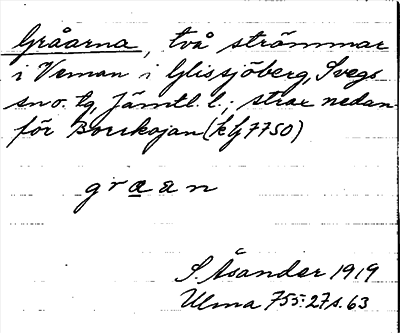 Gråarna, två strömmar
i Veman i Glissjöberg, Svegs
sn o. tg, Jämtl. l.; strax nedan-
för Borrkojan (kg 7750)
g r a a n
S. Åsander 1919
Ulma 755:27 s. 63